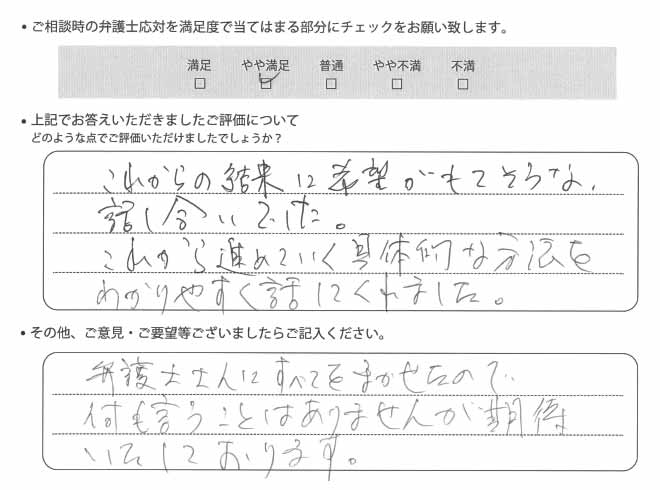 ・ご相談時の弁護士応対を満足度で当てはまる部分にチェックをお願い致します。
満足 やや満足 普通 やや不満 不満
□ ☑ □ □ □
・上記でお答えいただきましたご評価について
どのような点でご評価いただけましたでしょうか？
これからの結果に希望がもてそうな、
話し合いでした。
これから進めていく具体的な方法を
わかりやすく話してくれました。
・その他、ご意見・ご要望等ございましたらご記入ください。
弁護士さんにすべてをまかせたので
何も言うことはありませんが期待
いたしております。